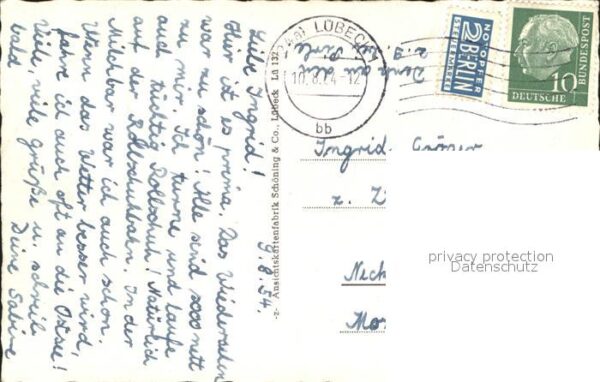 Liebe Ingrid!
Hier ist es prima. Das Wiedersehen
war zu schön! Alle sind sooo nett
zu mir. Ich turne und laufe
tüchtig Rollschuh! Natürlich
auf der Rollschuhbahn. In der
Milchbar war ich auch schon.
Wenn das Wetter besser wird,
fahre ich auch oft an die Ostsee!
Viele, viele Grüße u. schreib
bald
Deine Sabine
9.8.54.
-z- Ansichtskartenfabrik Schöning & Co., Lübeck Lü 132
LÜBECK
bb
Denk an die
NOTOPFER
2 BERLIN
STEUERMARKE
10
DEUTSCHE
BUNDESPOST
Ingrid
z.
Neck
Mo
privacy protection
Datenschutz